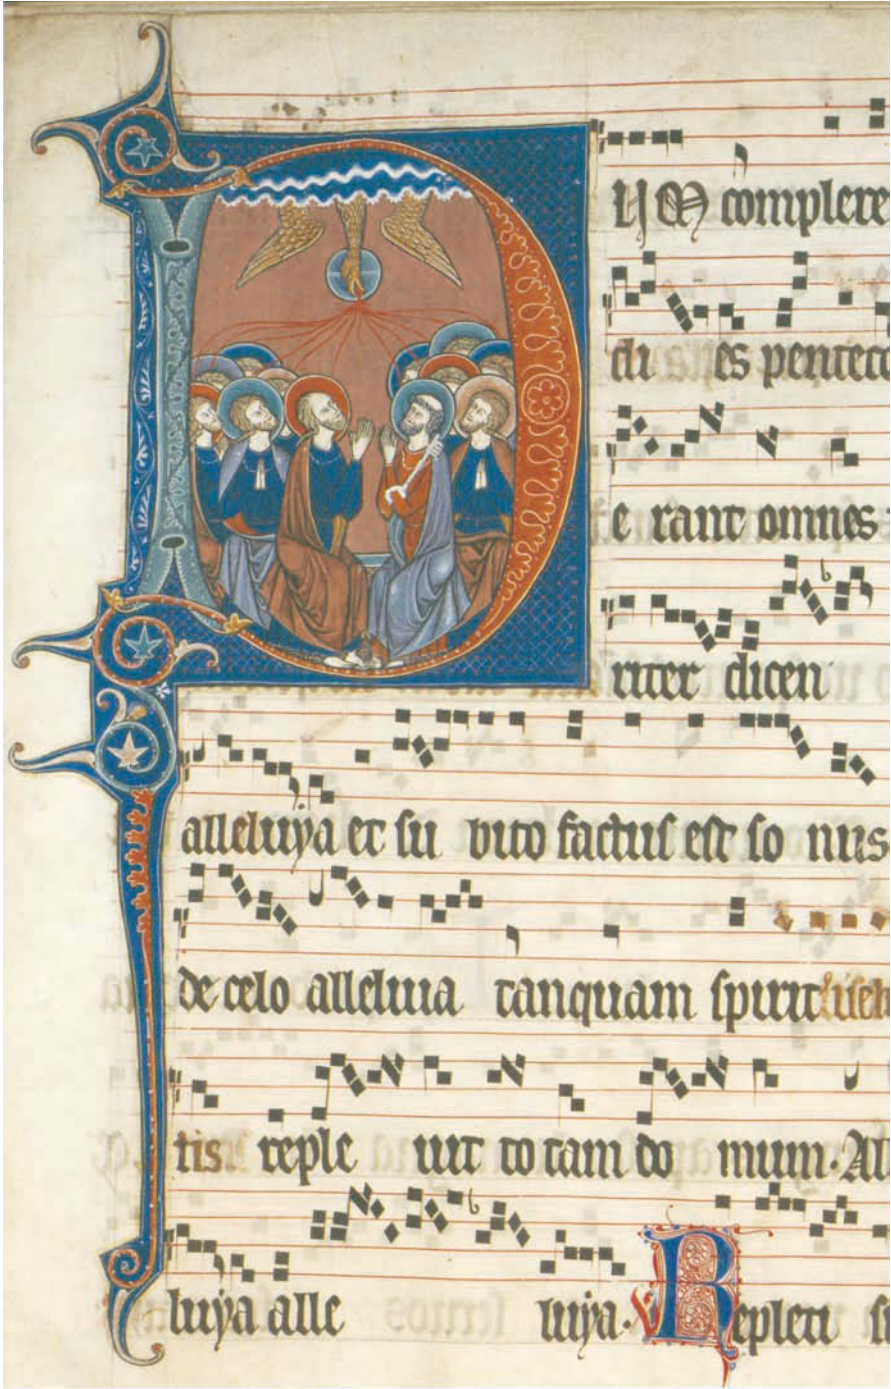 DUM complere
di es penteco
e rant omnes
riter dicen
alleluya et su bito factus est so nus
de celo alleluia tanquam spirit
tis. reple uit to tam do mum. Al
luya alle luya. V Repleti s